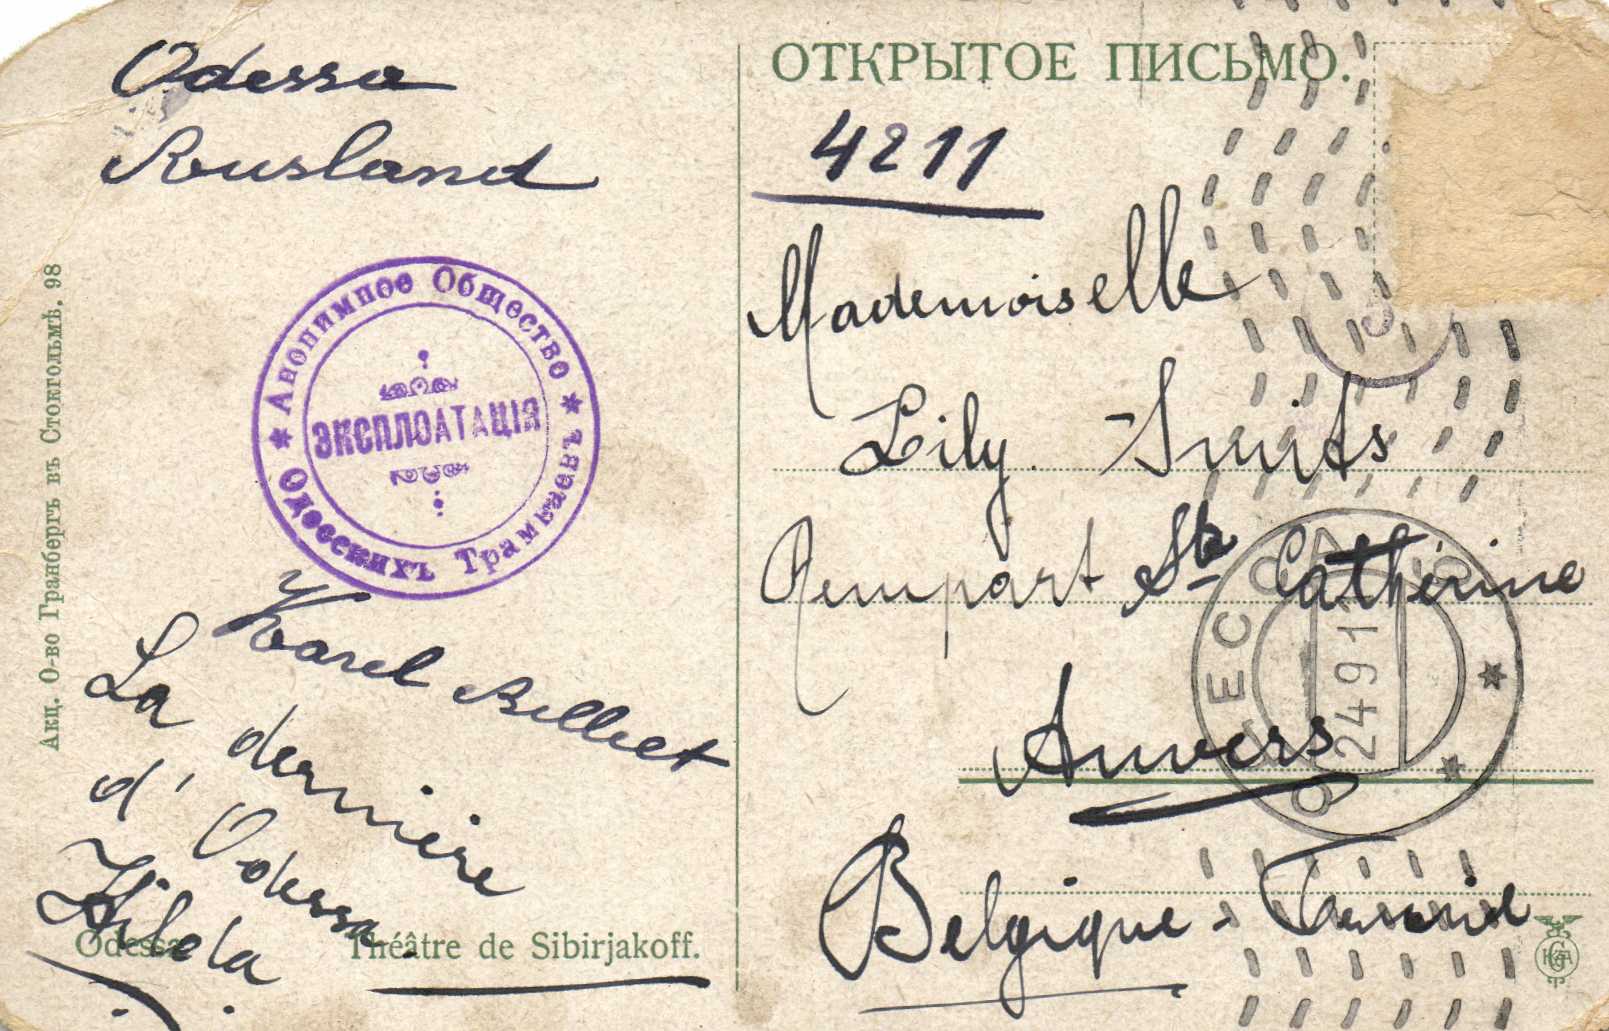 Odessa
Rusland
Акц. О-во Гранбергъ въ Стокгольмѣ. 98
* Анонимное Общество *
Одесскихъ Трамваевъ
ЭКСПЛОАТАЦІЯ
Karel Billiet
La dernière
d'Odessa
Odessa. Théâtre de Sibirjakoff.
ОТКРЫТОЕ ПИСЬМО.
4211
Mademoiselle
Lily Smits
Rempart Ste Cathérine
Anvers
Belgique
ОДЕССА
24 9 11